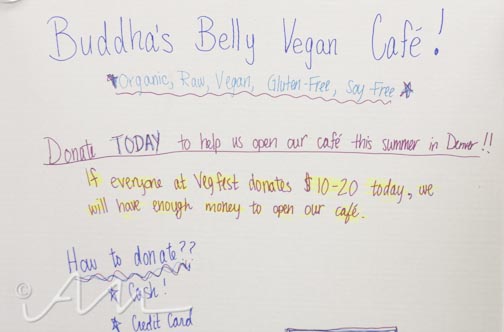 Buddha's Belly Vegan Café!
★Organic, Raw, Vegan, Gluten-Free, Soy-Free★
Donate TODAY to help us open our café this summer in Denver!!
If everyone at Vegfest donates $10-20 today, we
will have enough money to open our café.
How to donate??
★ Cash!
★ Credit Card